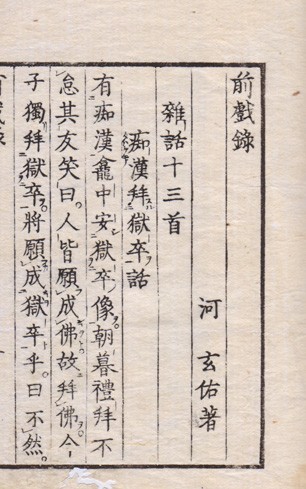 前戯録
河玄佑著
雑話十三首
痴漢拜獄卒話
有痴漢龕中安獄卒像朝暮禮拜不
怠其友笑曰。人皆願成佛故拜佛。今
子獨拜獄卒。將願成獄卒乎。曰不然。